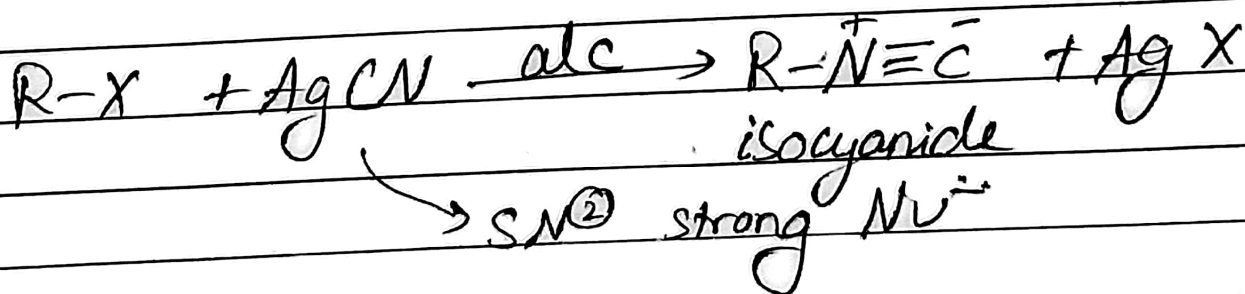 R-X + AgCN alc → R-N⁺≡C⁻ + AgX
isocyanide
→ SN② strong Nu⁻